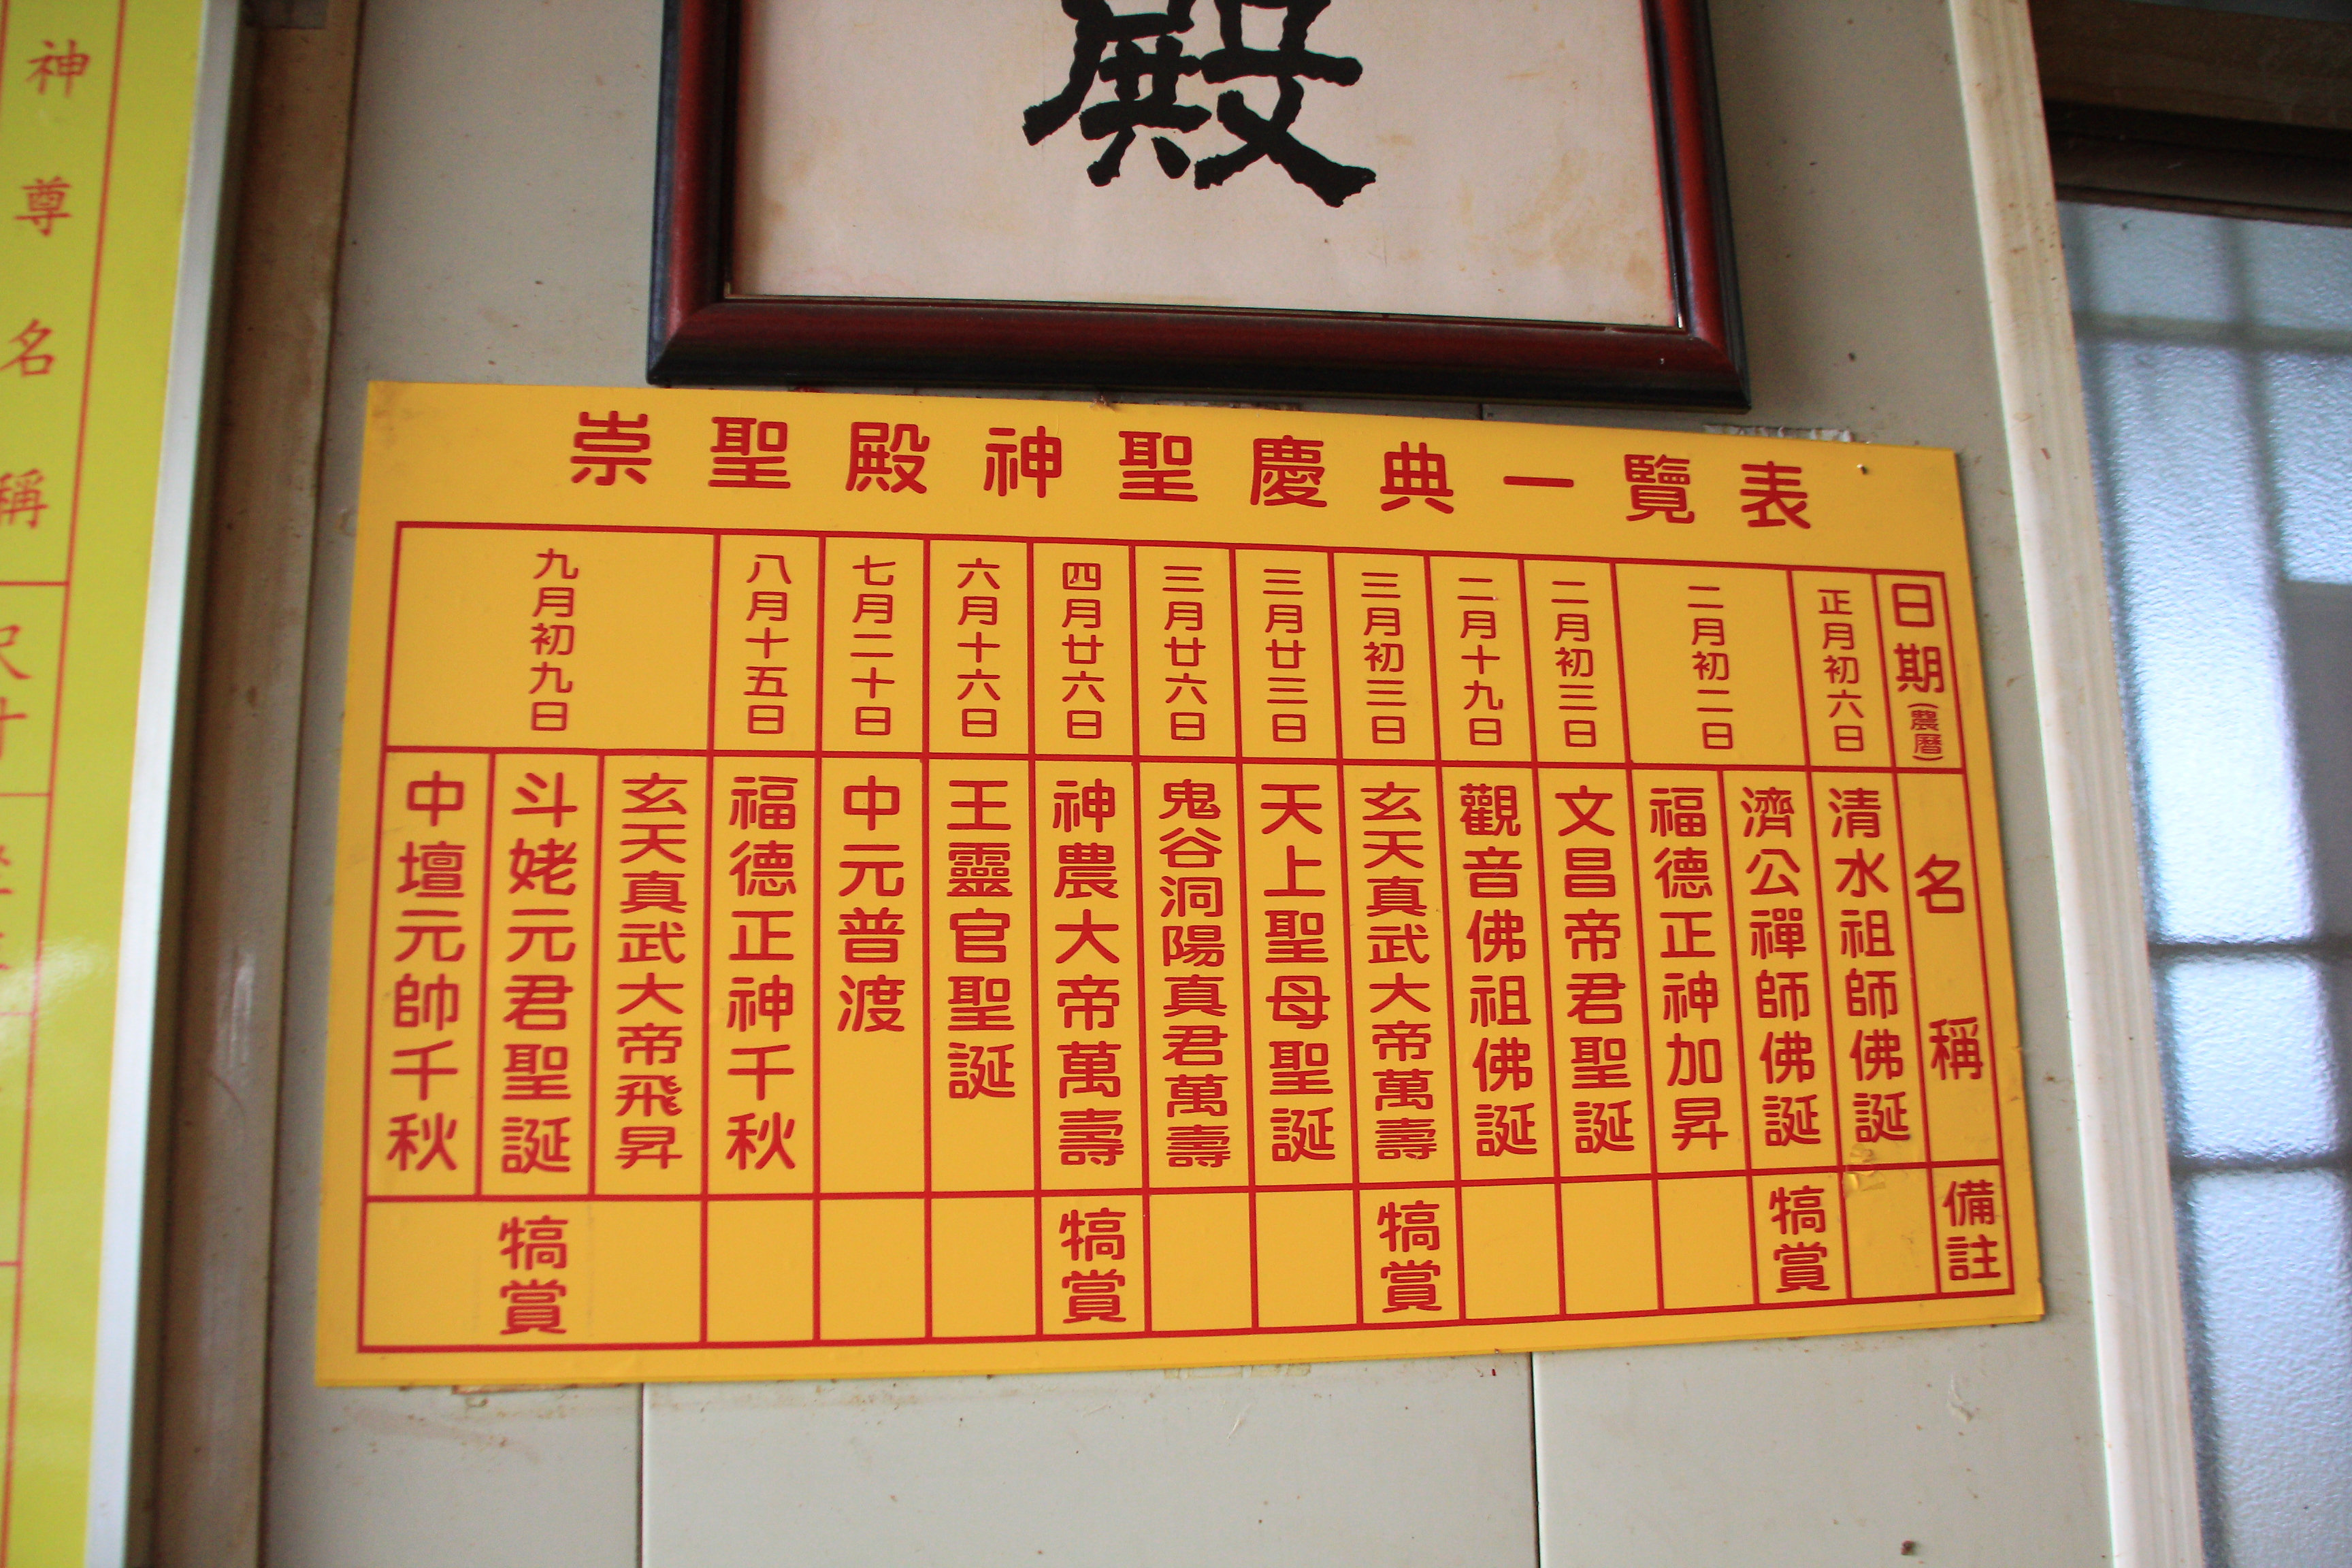 殿
崇聖殿神聖慶典一覽表
日期(農曆)
名稱
備註
正月初六日
清水祖師佛誕
二月初二日
濟公禪師佛誕
犒賞
福德正神加昇
二月初三日
文昌帝君聖誕
二月十九日
觀音佛祖佛誕
三月初三日
玄天真武大帝萬壽
犒賞
三月廿三日
天上聖母聖誕
三月廿六日
鬼谷洞陽真君萬壽
四月廿六日
神農大帝萬壽
犒賞
六月十六日
王靈官聖誕
七月二十日
中元普渡
八月十五日
福德正神千秋
九月初九日
玄天真武大帝飛昇
斗姥元君聖誕
中壇元帥千秋
犒賞
神尊名稱